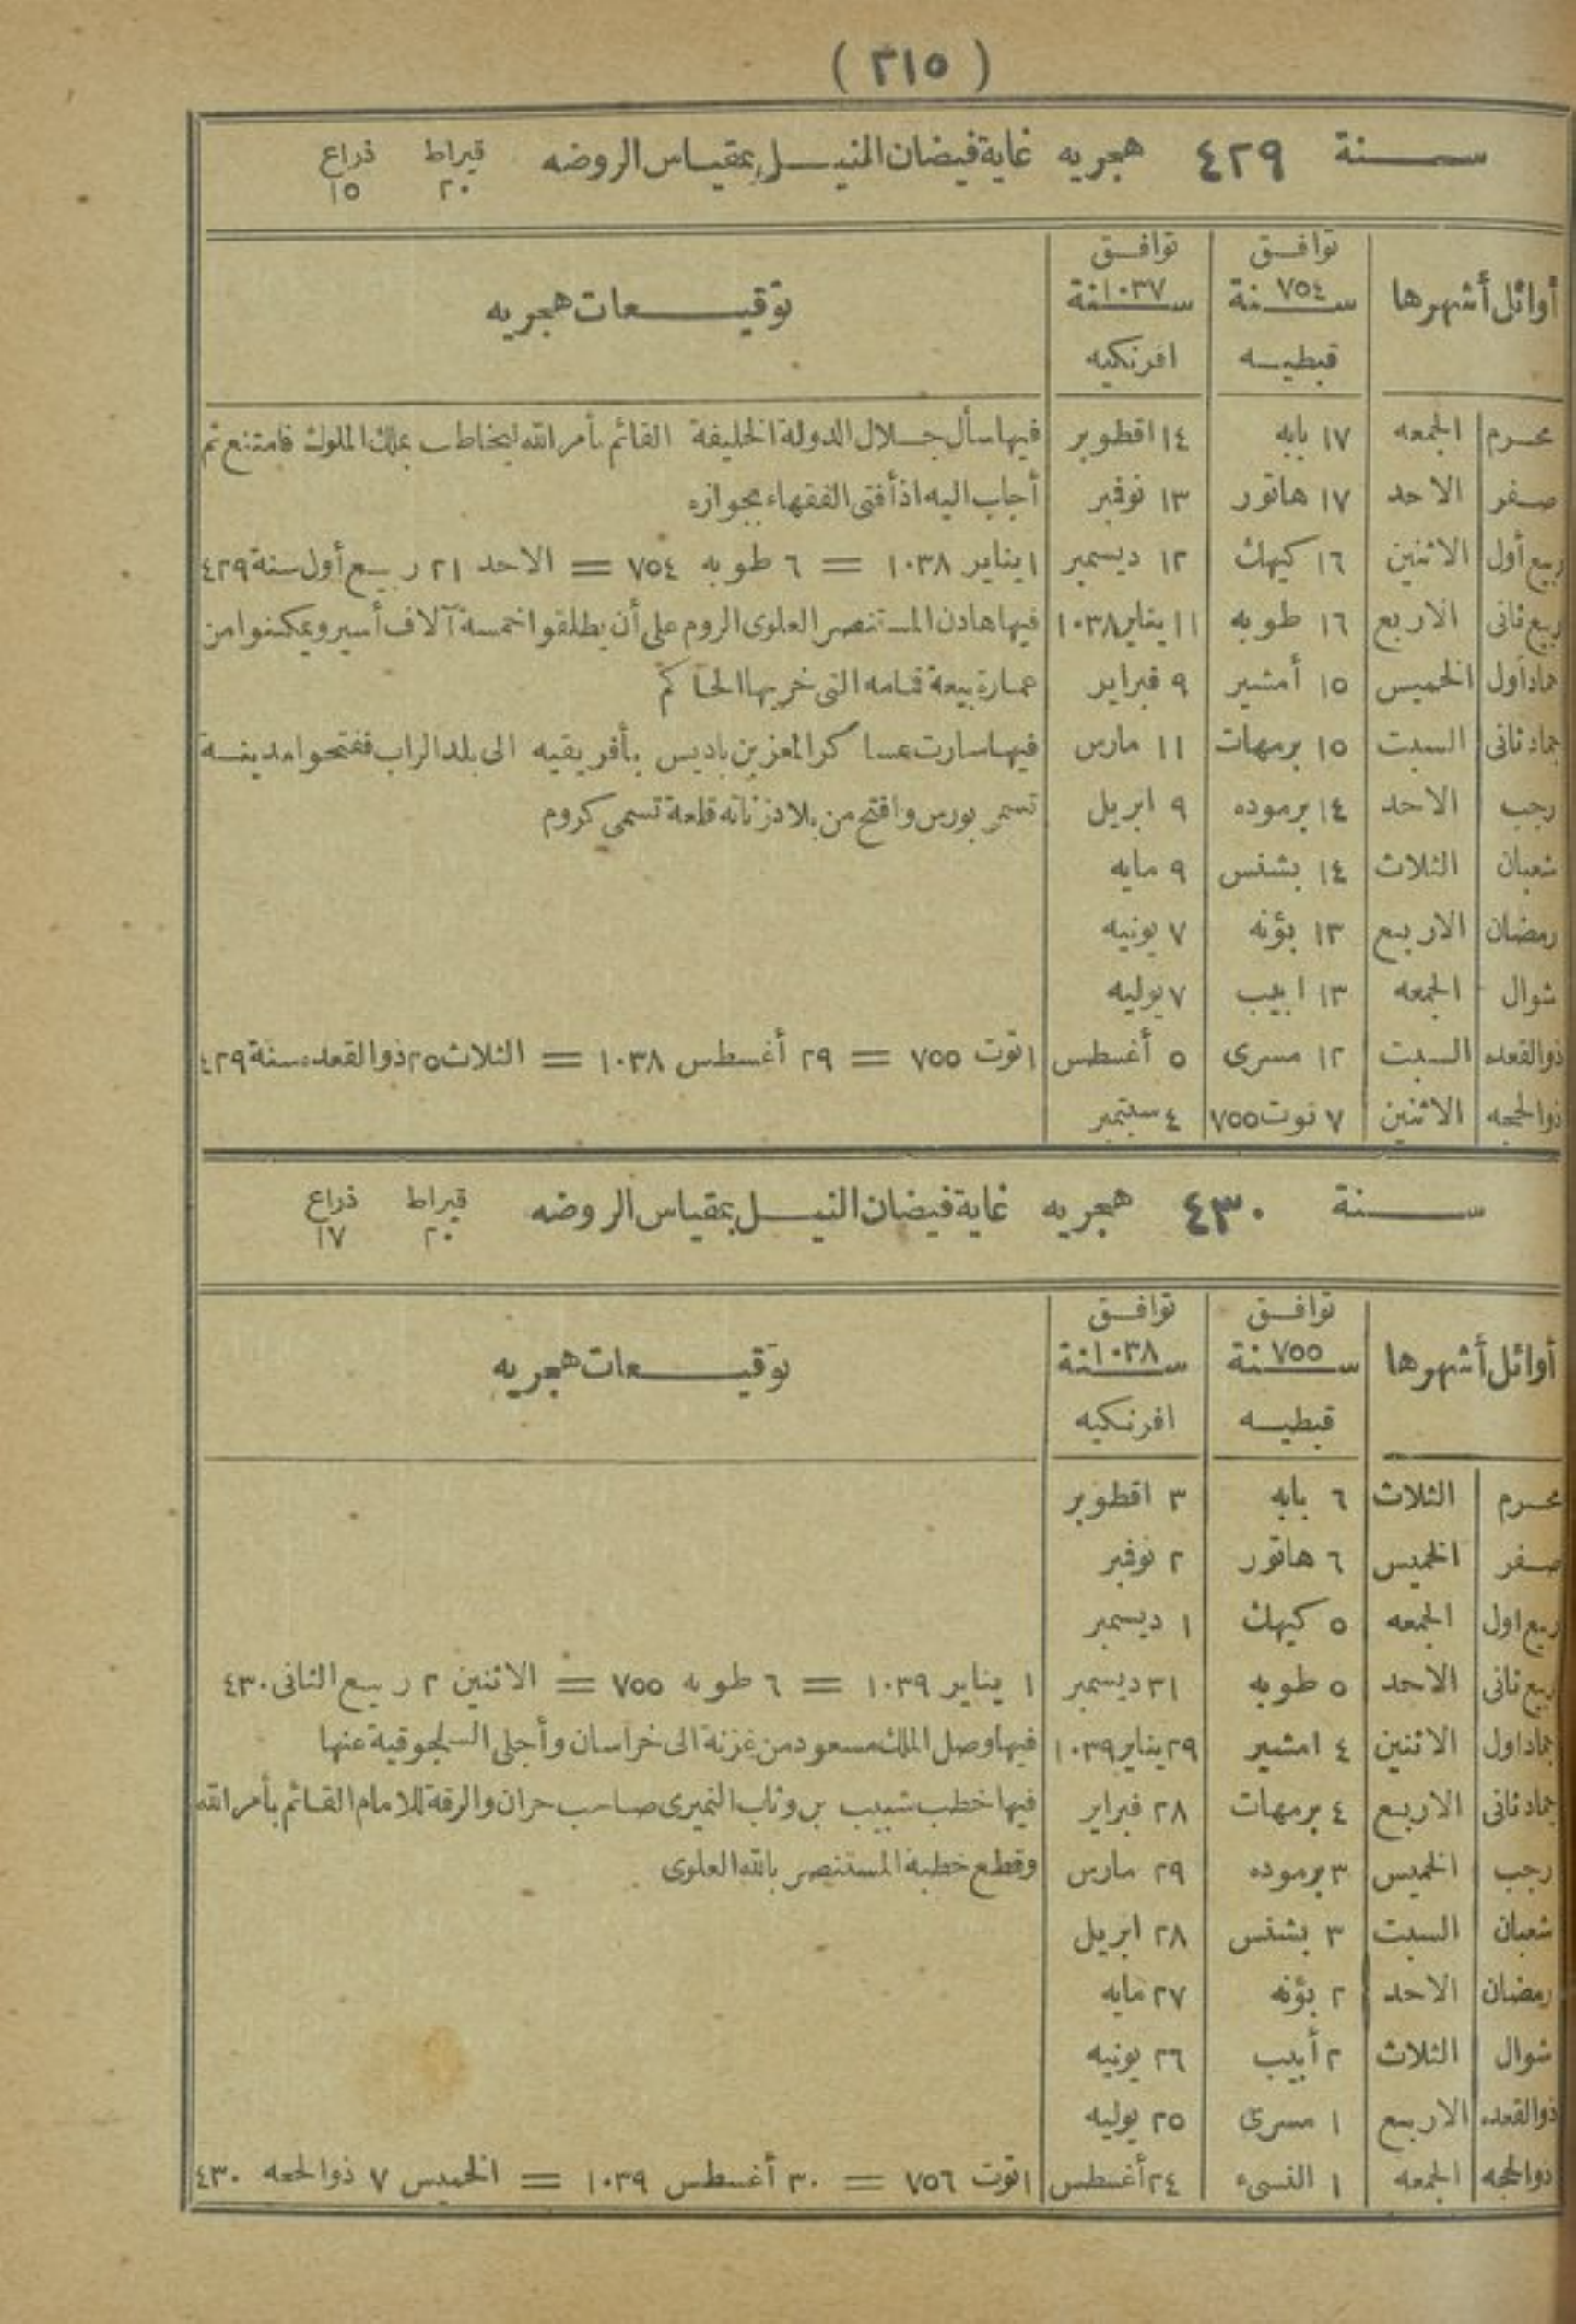 ( ٢١٥ )
سنة ٤٢٩ هجريه غاية فيضان النيل بمقياس الروضه قيراط ٢٠ ذراع ١٥
أوائل أشهرها توافق سنة ٧٥٤ قبطيه توافق سنة ١٠٣٧ افرنكيه توقيعات هجريه
محرم الجمعه ١٧ بابه ١٤ اقطوبر فيها سأل جلال الدولة الخليفة القائم بأمر الله ليخاطب بملك الملوك فامتنع ثم
صفر الاحد ١٧ هاتور ١٣ نوفمبر أجاب اليه اذ أفتى الفقهاء بجوازه
ربيع أول الاثنين ١٦ كيهك ١٢ ديسمبر ١ يناير ١٠٣٨ = ٦ طوبه ٧٥٤ = الاحد ٢١ ربيع أول سنة ٤٢٩
ربيع ثانى الاربع ١٦ طوبه ١١ يناير ١٠٣٨ فيها هادن المستنصر العلوى الروم على أن يطلقوا خمسة آلاف أسير ويمكنوا من
جماد أول الخميس ١٥ أمشير ٩ فبراير عمارة بيعة قمامه التى خربها الحاكم
جماد ثانى السبت ١٥ برمهات ١١ مارس فيها سارت عساكر المعز بن باديس بأفريقيه الى بلد الزاب ففتحوا مدينة
رجب الاحد ١٤ برموده ٩ ابريل تسمى بورس وافتتح من بلاد زناته قلعة تسمى كروم
شعبان الثلاث ١٤ بشنس ٩ مايه
رمضان الاربع ١٣ بؤنه ٧ يونيه
شوال الجمعه ١٣ ابيب ٧ يوليه
ذوالقعده السبت ١٢ مسرى ٥ أغسطس ١ توت ٧٥٥ = ٢٩ أغسطس ١٠٣٨ = الثلاث ٢٥ ذوالقعده سنة ٤٢٩
ذوالحجه الاثنين ٧ توت ٧٥٥ ٤ سبتمبر
سنة ٤٣٠ هجريه غاية فيضان النيل بمقياس الروضه قيراط ٢٠ ذراع ١٧
أوائل أشهرها توافق سنة ٧٥٥ قبطيه توافق سنة ١٠٣٨ افرنكيه توقيعات هجريه
محرم الثلاث ٦ بابه ٣ اقطوبر
صفر الخميس ٦ هاتور ٢ نوفمبر
ربيع اول الجمعه ٥ كيهك ١ ديسمبر
ربيع ثانى الاحد ٥ طوبه ٣١ ديسمبر ١ يناير ١٠٣٩ = ٦ طوبه ٧٥٥ = الاثنين ٢ ربيع الثانى ٤٣٠
جماد اول الاثنين ٤ امشير ٢٩ يناير ١٠٣٩ فيها وصل الملك مسعود من غزنة الى خراسان وأجلى السلجوقية عنها
جماد ثانى الاربع ٤ برمهات ٢٨ فبراير فيها خطب شبيب بن وثاب النميرى صاحب حران والرقة للامام القائم بأمر الله
رجب الخميس ٣ برموده ٢٩ مارس وقطع خطبة المستنصر بالله العلوى
شعبان السبت ٣ بشنس ٢٨ ابريل
رمضان الاحد ٢ بؤنه ٢٧ مايه
شوال الثلاث ٢ أبيب ٢٦ يونيه
ذوالقعده الاربع ١ مسرى ٢٥ يوليه
ذوالحجه الجمعه ١ النسىء ٢٤ أغسطس ١ توت ٧٥٦ = ٣٠ أغسطس ١٠٣٩ = الخميس ٧ ذوالحجه ٤٣٠